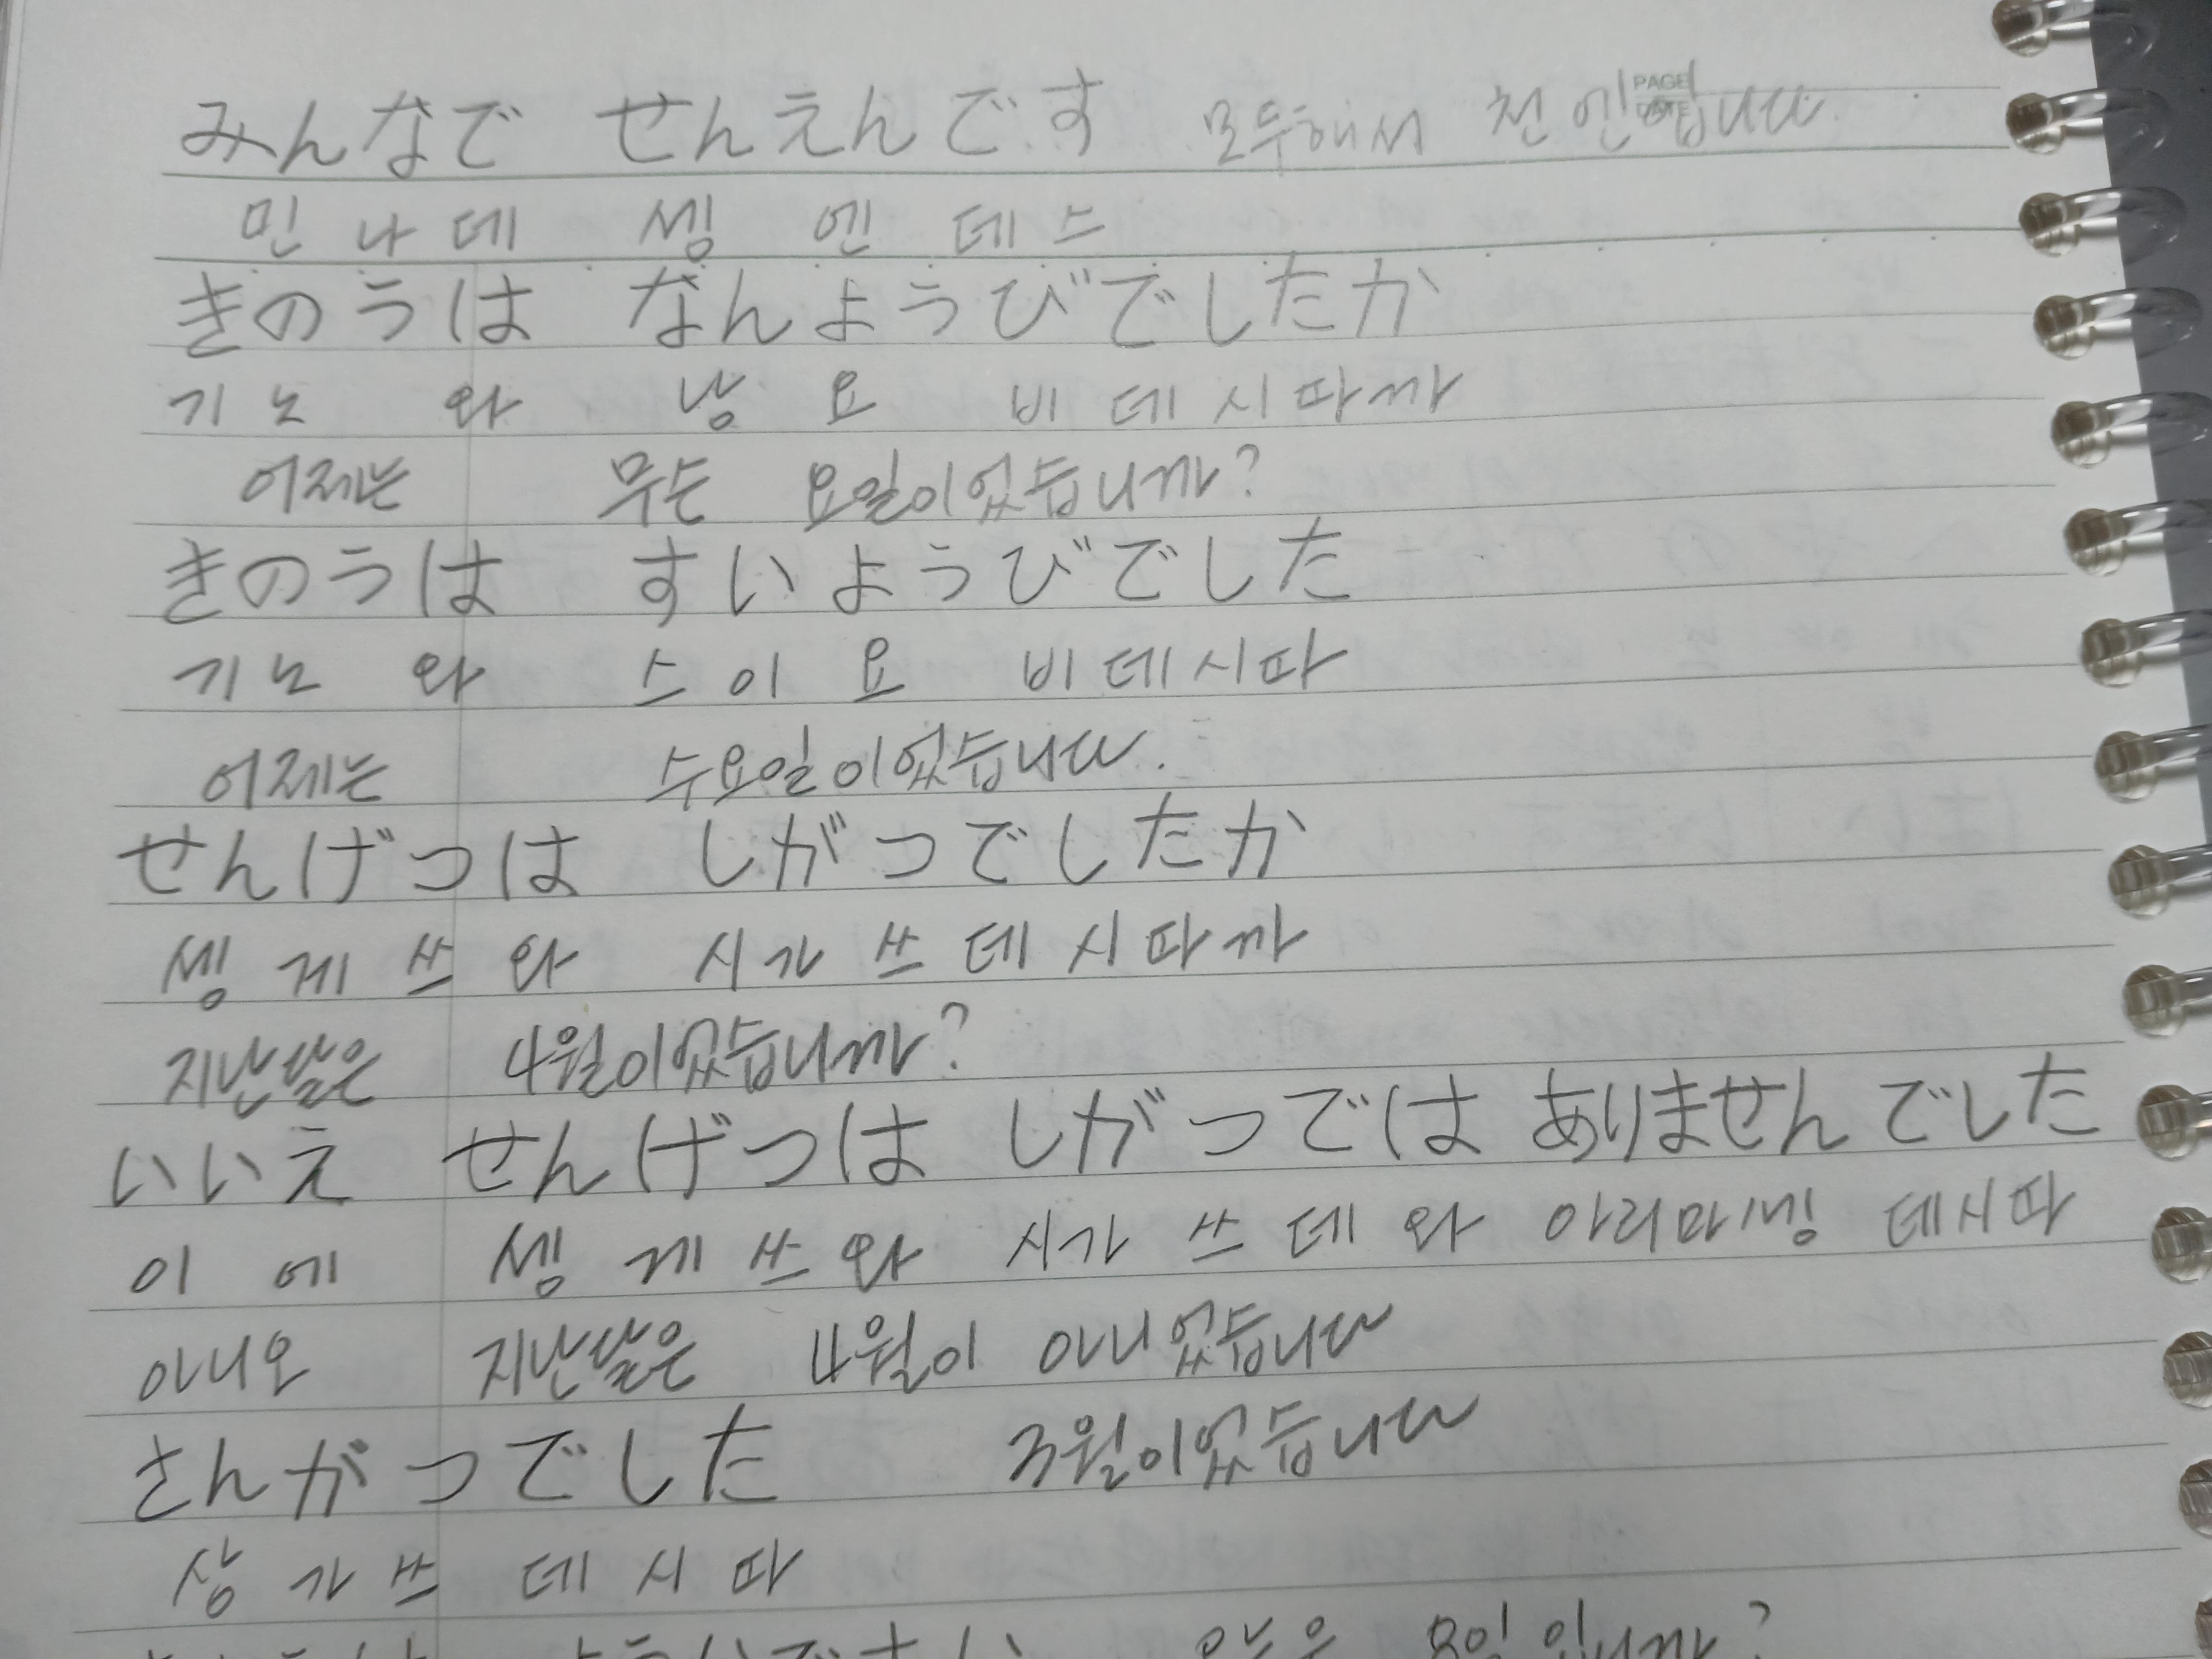 みんなで せんえんです 모두해서 천 엔입니다.
PAGE
DATE
민 나 데 셍 엔 데 스
きのうは なんようびでしたか
기 노 와 낭 요 비 데 시 따 까
어제는 무슨 요일이었습니까?
きのうは すいようびでした
기 노 와 스 이 요 비 데 시 따
어제는 수요일이었습니다.
せんげつは しがつでしたか
셍 게 쓰 와 시 가 쓰 데 시 따 까
지난달은 4월이었습니까?
いいえ せんげつは しがつでは ありませんでした
이 에 셍 게 쓰 와 시 가 쓰 데 와 아 리 마 셍 데 시 따
아니오 지난달은 4월이 아니었습니다
さんがつでした 3월이었습니다
상 가 쓰 데 시 따